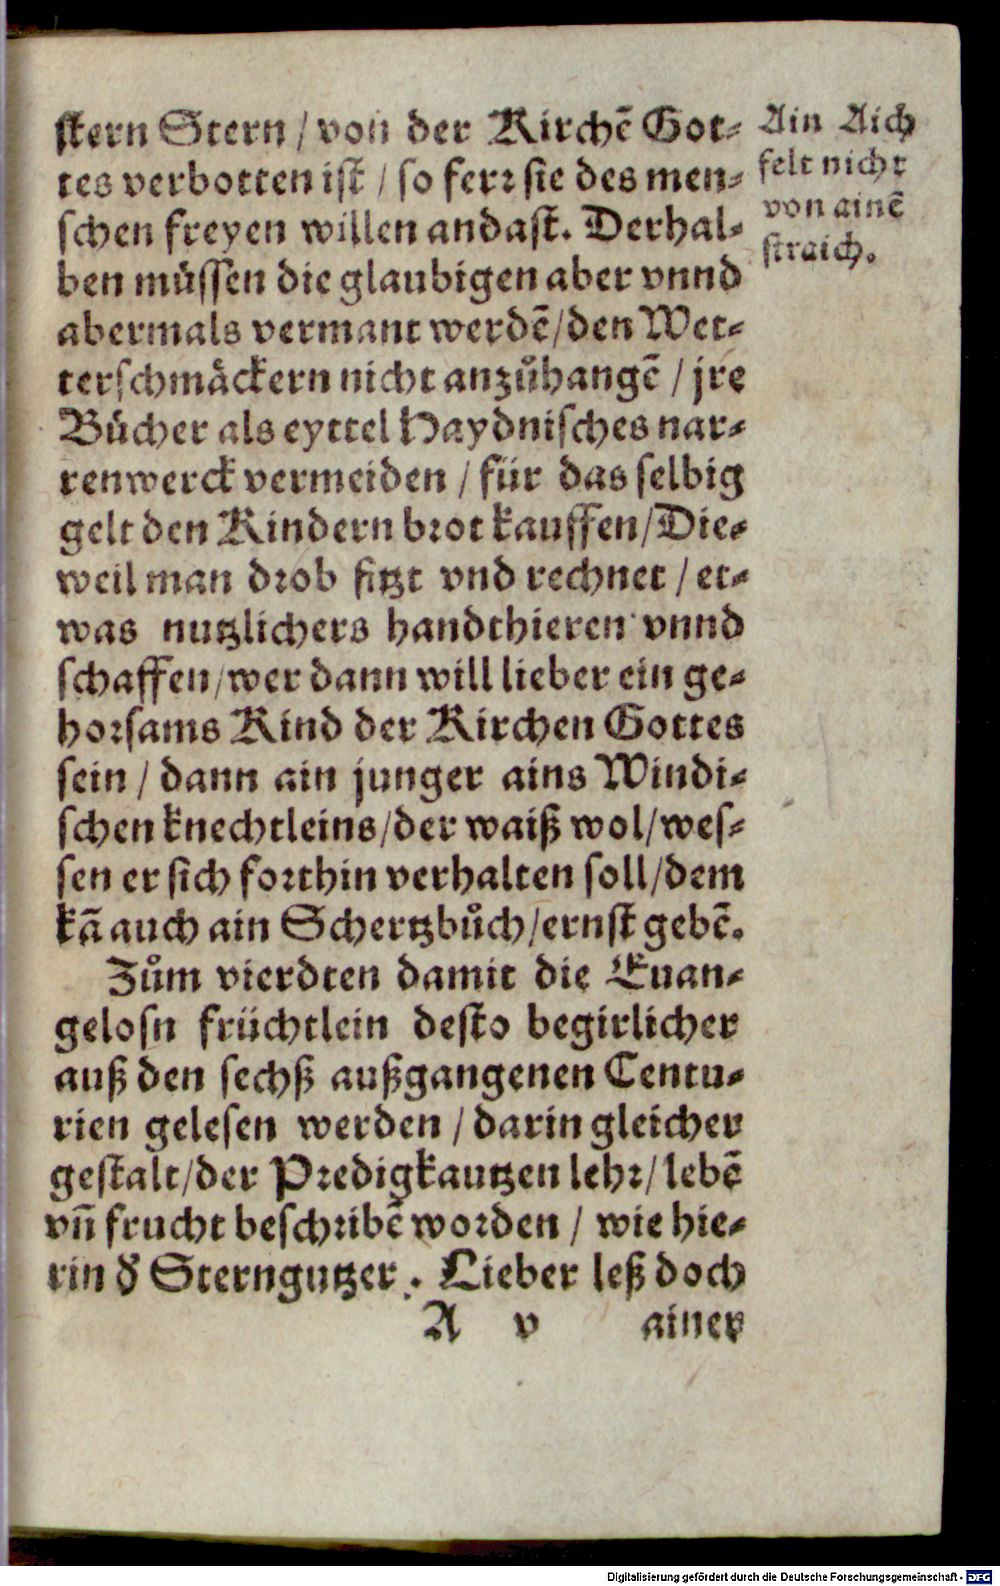 stern Stern / von der Kirchē Got-
tes verbotten ist / so ferr sie des men-
schen freyen willen andast. Derhal-
ben müssen die glaubigen aber vnnd
abermals vermant werdē/den Wet-
terschmäckern nicht anzůhangē / jre
Bücher als eyttel Haydnisches nar-
renwerck vermeiden / für das selbig
gelt den Kindern brot kauffen/Die-
weil man drob sitzt vnd rechnet / et-
was nutzlichers handthieren vnnd
schaffen/wer dann will lieber ein ge-
horsams Kind der Kirchen Gottes
sein / dann ain junger ains Windi-
schen knechtleins/der waiß wol/wes-
sen er sich forthin verhalten soll/dem
kā auch ain Schertzbůch/ernst gebē.
Zům vierdten damit die Euan-
gelosn früchtlein desto begirlicher
auß den sechß außgangenen Centu-
rien gelesen werden / darin gleicher
gestalt/der Predigkautzen lehr/lebē
vñ frucht beschribē worden / wie hie-
rin d' Sterngutzer. Lieber leß doch
A v ainer
Ain Aich
felt nicht
von ainē
straich.
Digitalisierung gefördert durch die Deutsche Forschungsgemeinschaft - DFG